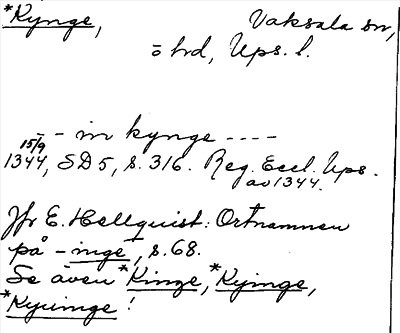 *Kynge, Vaksala sn,
ö hd, Ups. l.
- - in kynge - - - -
15/9
1344, SD 5, s. 316. Reg. Eccl. Ups.
av 1344.
Jfr E. Hellquist: Ortnamnen
på -inge, s. 68.
Se även *Kinge, *Kyinge,
*Kyuinge!